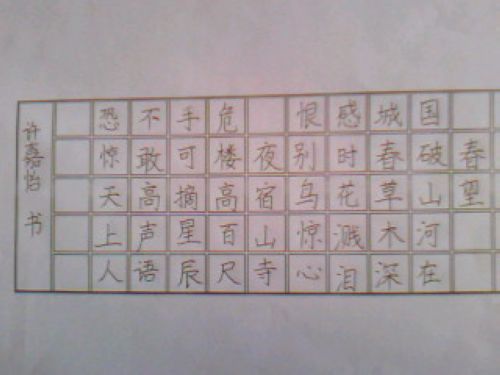 春望
国破山河在
城春草木深
感时花溅泪
恨别鸟惊心
夜宿山寺
危楼高百尺
手可摘星辰
不敢高声语
恐惊天上人
许嘉怡 书